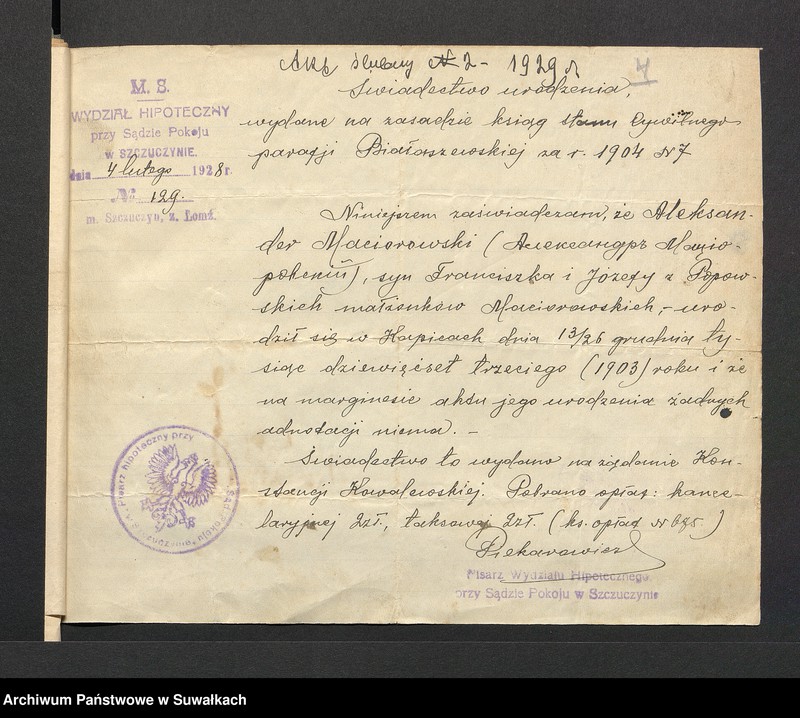 Akt ślubny № 2 - 1929 r
4
M. S.
WYDZIAŁ HIPOTECZNY
przy Sądzie Pokoju
w SZCZUCZYNIE.
dnia 4 lutego 1928 r.
№ 129.
m. Szczuczyn, z. Łomż.
Świadectwo urodzenia,
wydane na zasadzie ksiąg stanu cywilnego
parafji Białaszewskiej za r. 1904 N 7
Niniejszem zaświadczam, że Aleksan-
der Maciorowski (Александръ Мацио-
ровский), syn Franciszka i Józefy z Popow-
skich małżonków Maciorowskich, - uro-
dził się w Kapicach dnia 13/26 grudnia ty-
siąc dziewięćset trzeciego (1903) roku i że
na marginesie aktu jego urodzenia żadnych
adnotacji niema. -
Świadectwo to wydano na żądanie Kon-
stancji Kowalewskiej. Pobrano opłat: kance-
laryjnej 2zł., taksowej 2zł. (ks. opłat N 675)
Piekarewicz
Pisarz Wydziału Hipotecznego
przy Sądzie Pokoju w Szczuczynie
Pisarz hipoteczny przy Sądzie Pokoju w Szczuczynie
Archiwum Państwowe w Suwałkach